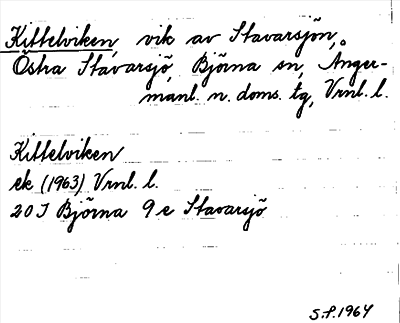 Kittelviken vik av Stavarsjön,
Östra Stavarsjö, Björna sn, Ånger-
manl. n. doms. tg, Vrnl. l.
Kittelviken
ek (1963) Vrnl. l.
20 J Björna 9 e Stavarsjö
S.P. 1964